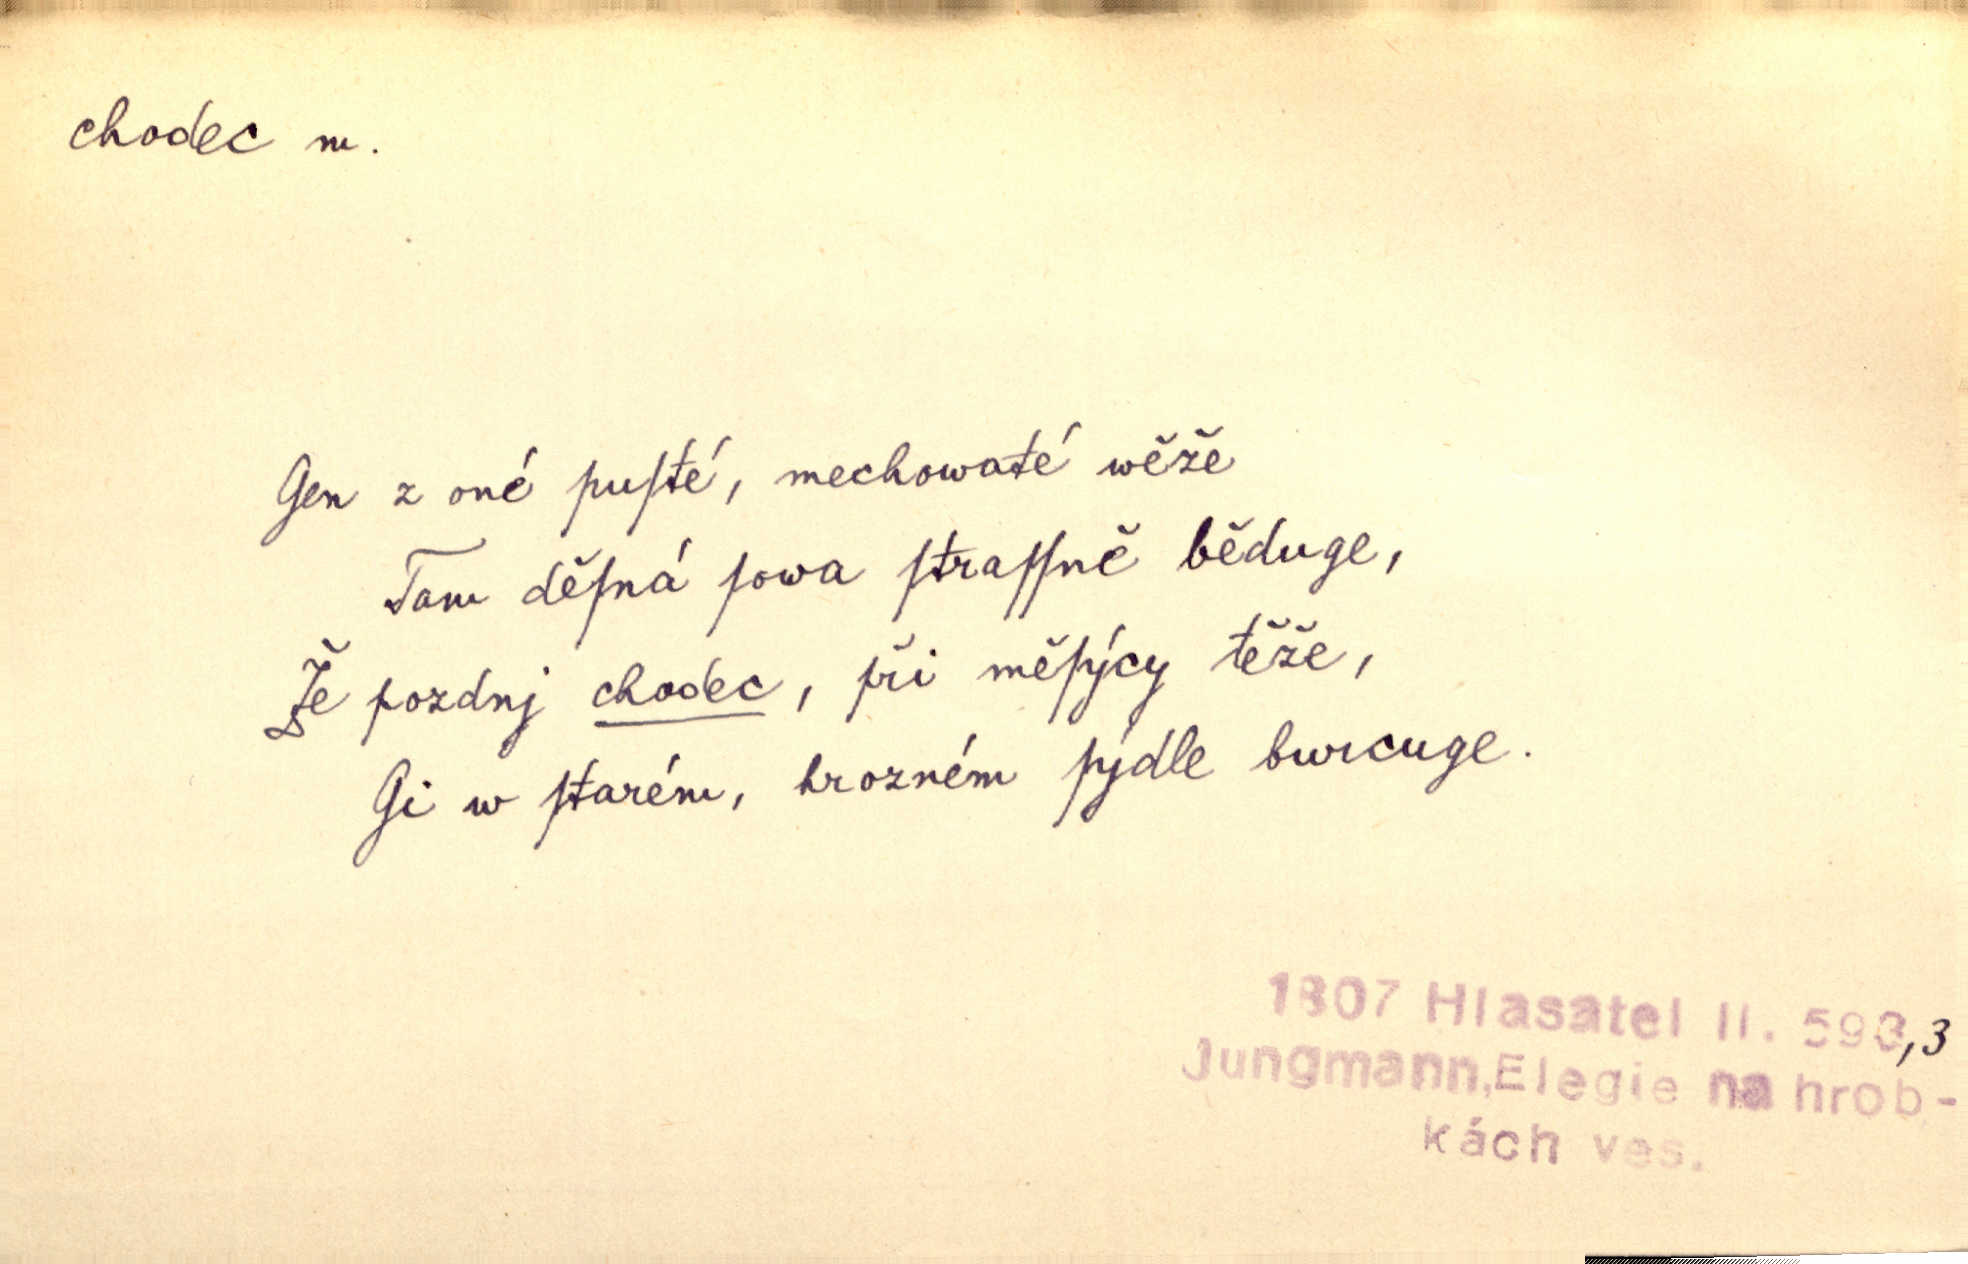 chodec m.
Gen z oné puſté, mechowaté wěže
Tam děſná ſowa ſtraſſně běduge,
Že pozdnj chodec, při měſýcy těže,
Gi w ſtarém, hrozném ſýdle burcuge.
1807 Hlasatel II. 593,3
Jungmann,Elegie na hrob-
kách ves.